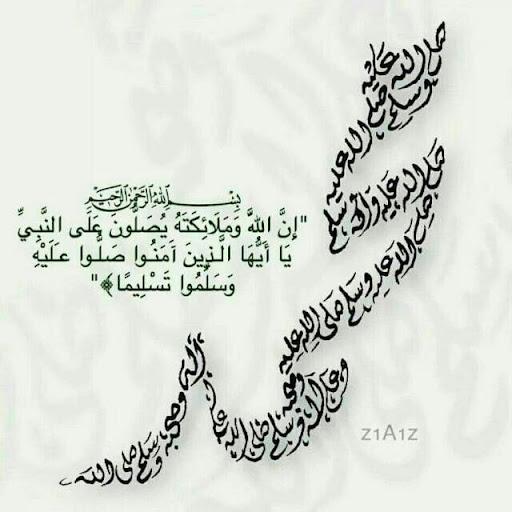 بسم الله الرحمن الرحيم
"إِنَّ اللَّهَ وَمَلَائِكَتَهُ يُصَلُّونَ عَلَى النَّبِيِّ
يَا أَيُّهَا الَّذِينَ آمَنُوا صَلُّوا عَلَيْهِ
وَسَلِّمُوا تَسْلِيمًا﴾"
صلى الله عليه وسلم
صلى الله عليه وسلم
صلى الله عليه وآله
صلى الله عليه وسلم صلى الله عليه
وعلى آله وصحبه وسلم صلى الله
آله وصحبه وسلم صلى الله
z1A1z